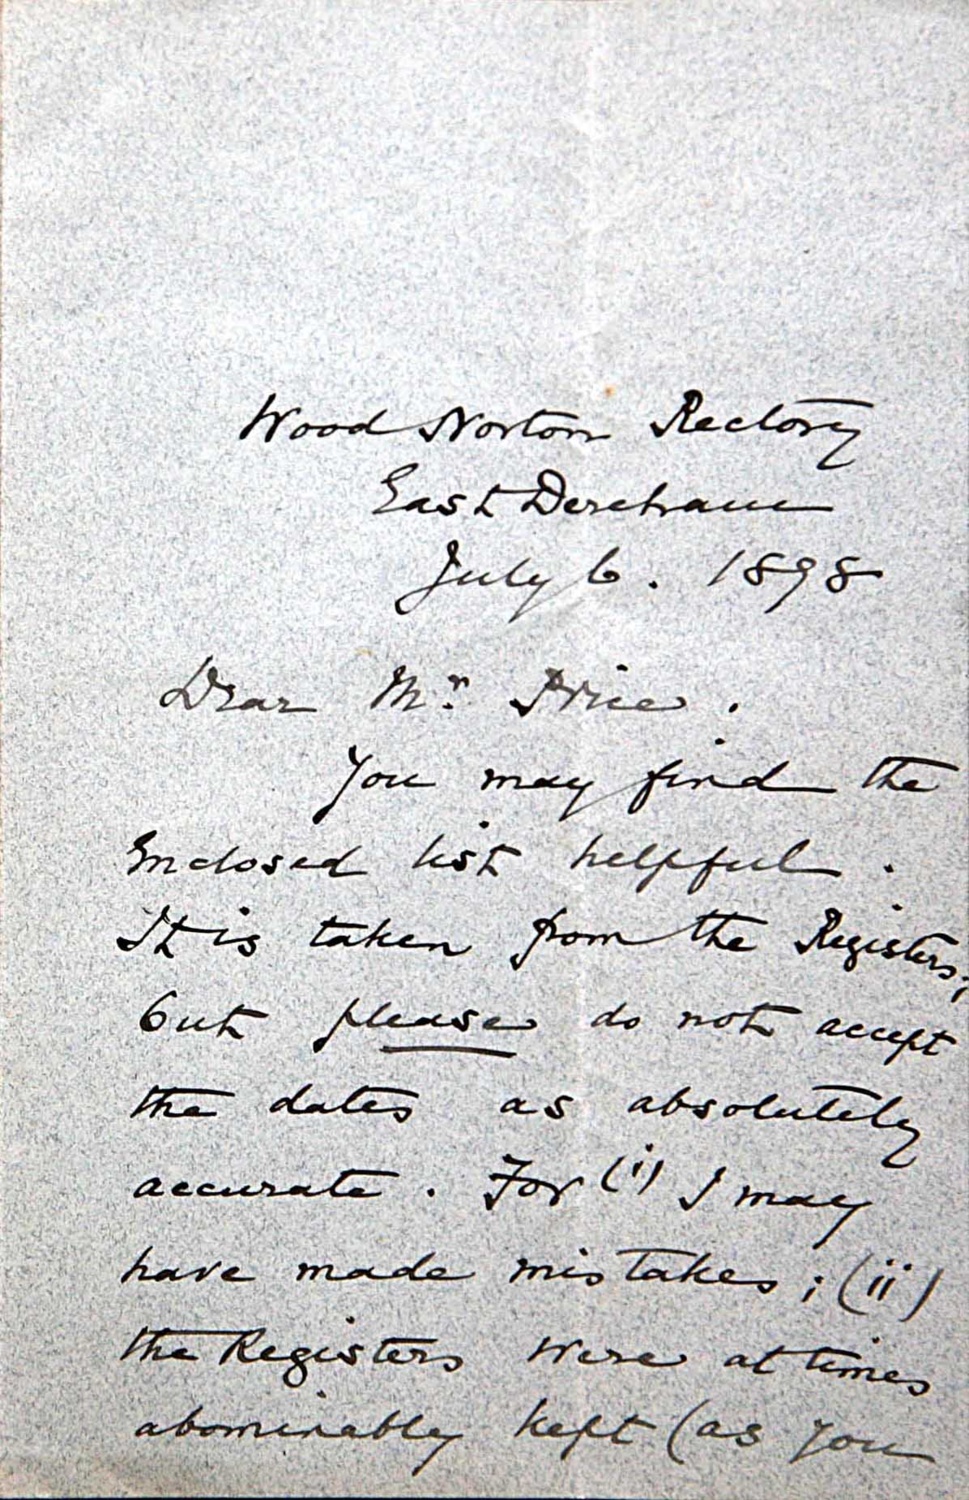 Wood Norton Rectory
East Dereham
July 6. 1898
Dear Mr. Price.
You may find the
Enclosed list helpful.
It is taken from the Registers;
but please do not accept
the dates as absolutely
accurate. For (i) I may
have made mistakes; (ii)
the Registers were at times
abominably kept (as you